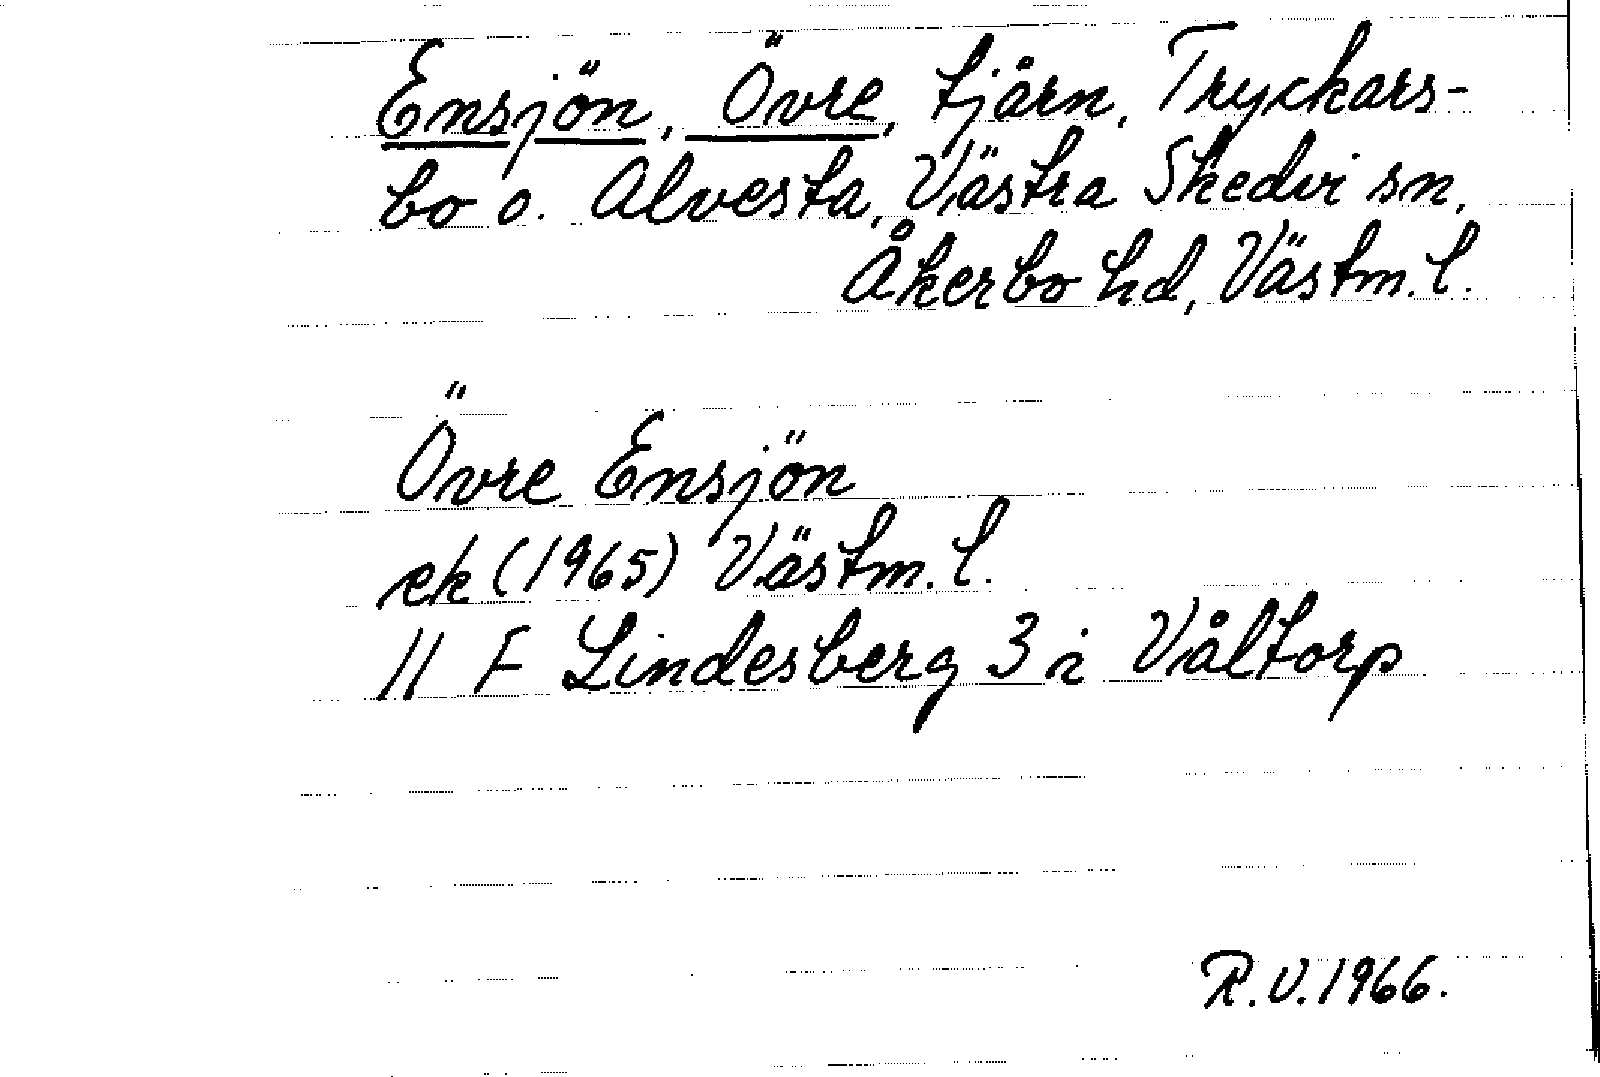 Ensjön, Övre, tjärn, Tryckars-
bo o. Alvesta, Västra Skedvi sn,
Åkerbo hd, Västm. l.
Övre Ensjön
ek (1965) Västm. l.
11 F Lindesberg 3 i Våltorp
R.V. 1966.